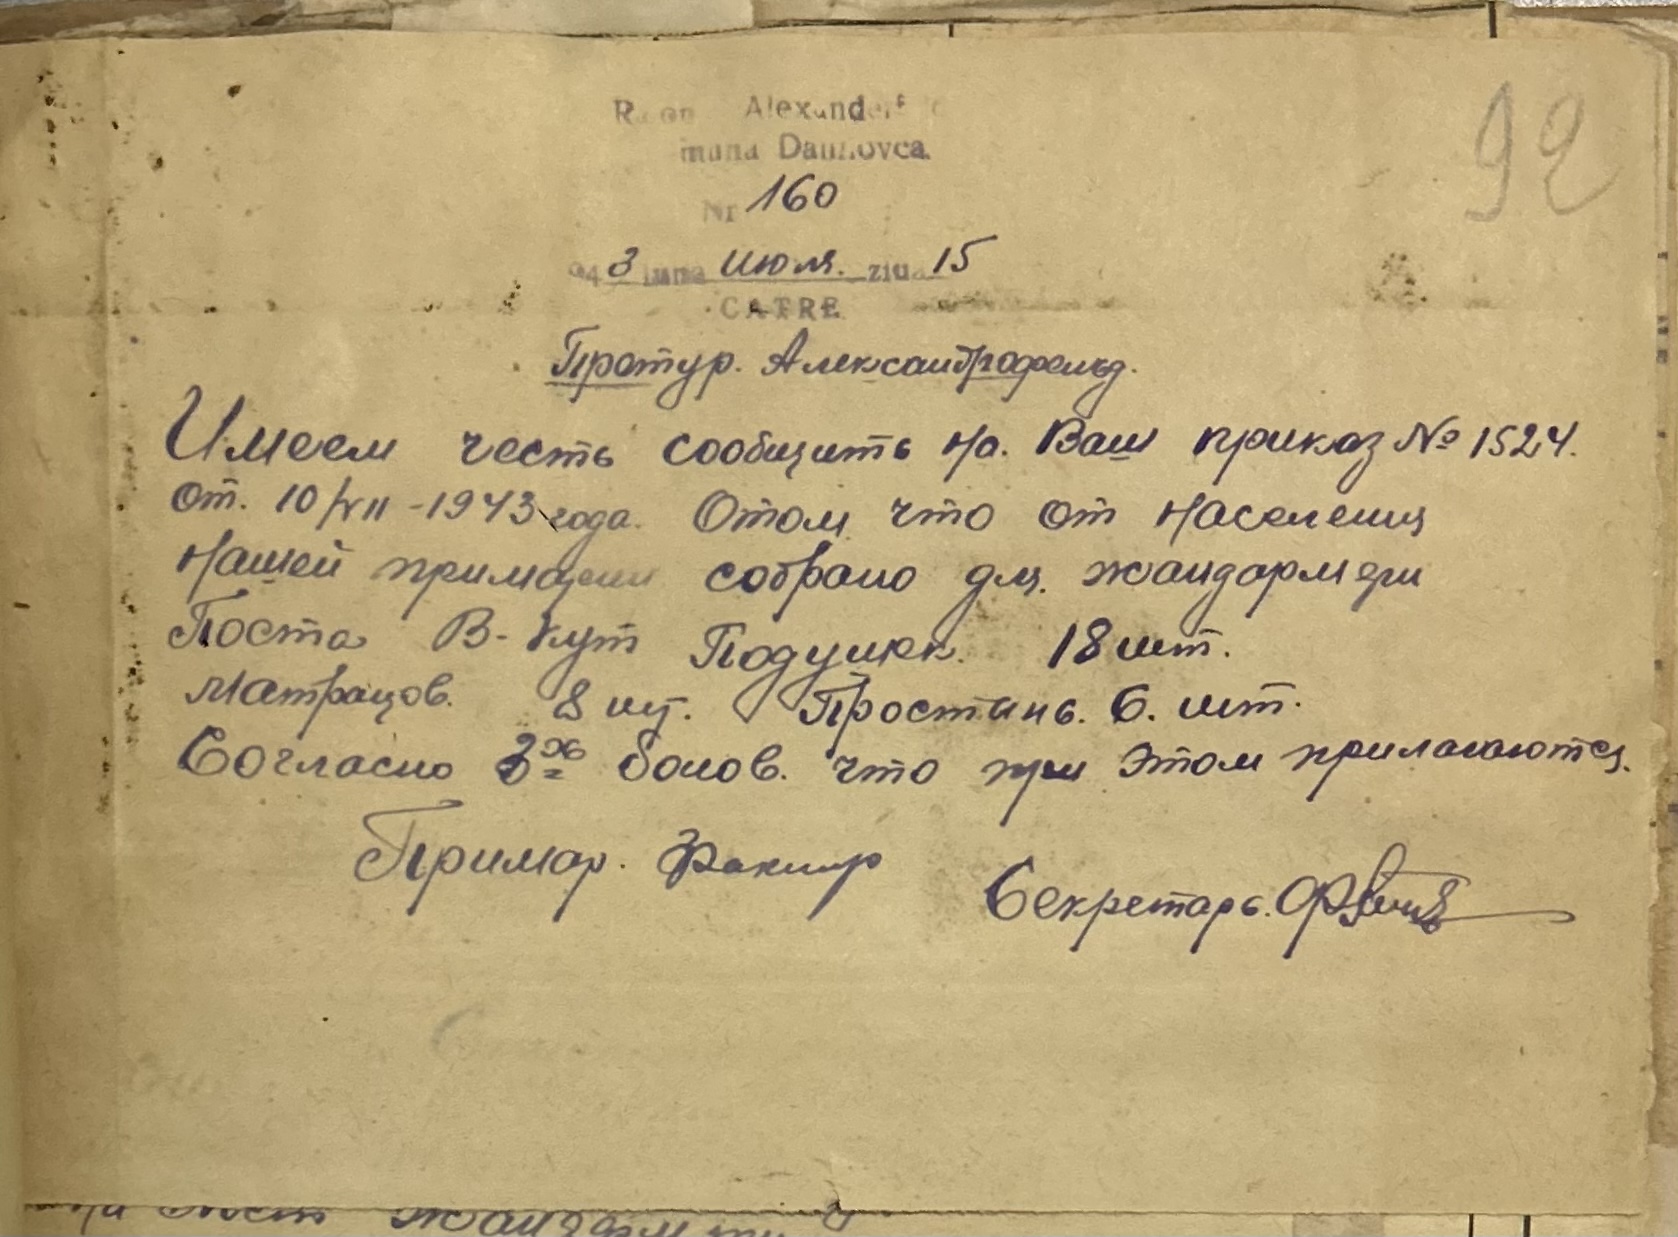 92
Alexanderf
muna
Nr 160
1943 luna Июля. ziua 15
CATRE
Претур. Александрофельд.
Имеем честь сообщить на. Ваш приказ № 1524.
от. 10/VII-1943 года. Отом что от населения
нашей примарии собрано для. жандармерии
Поста В-Кут Подушек. 18 шт.
матрацов. 8 шт. Простынь. 6. шт.
Согласно 3х бонов. что при этом прилагаются.
Примар.
Секретарь.